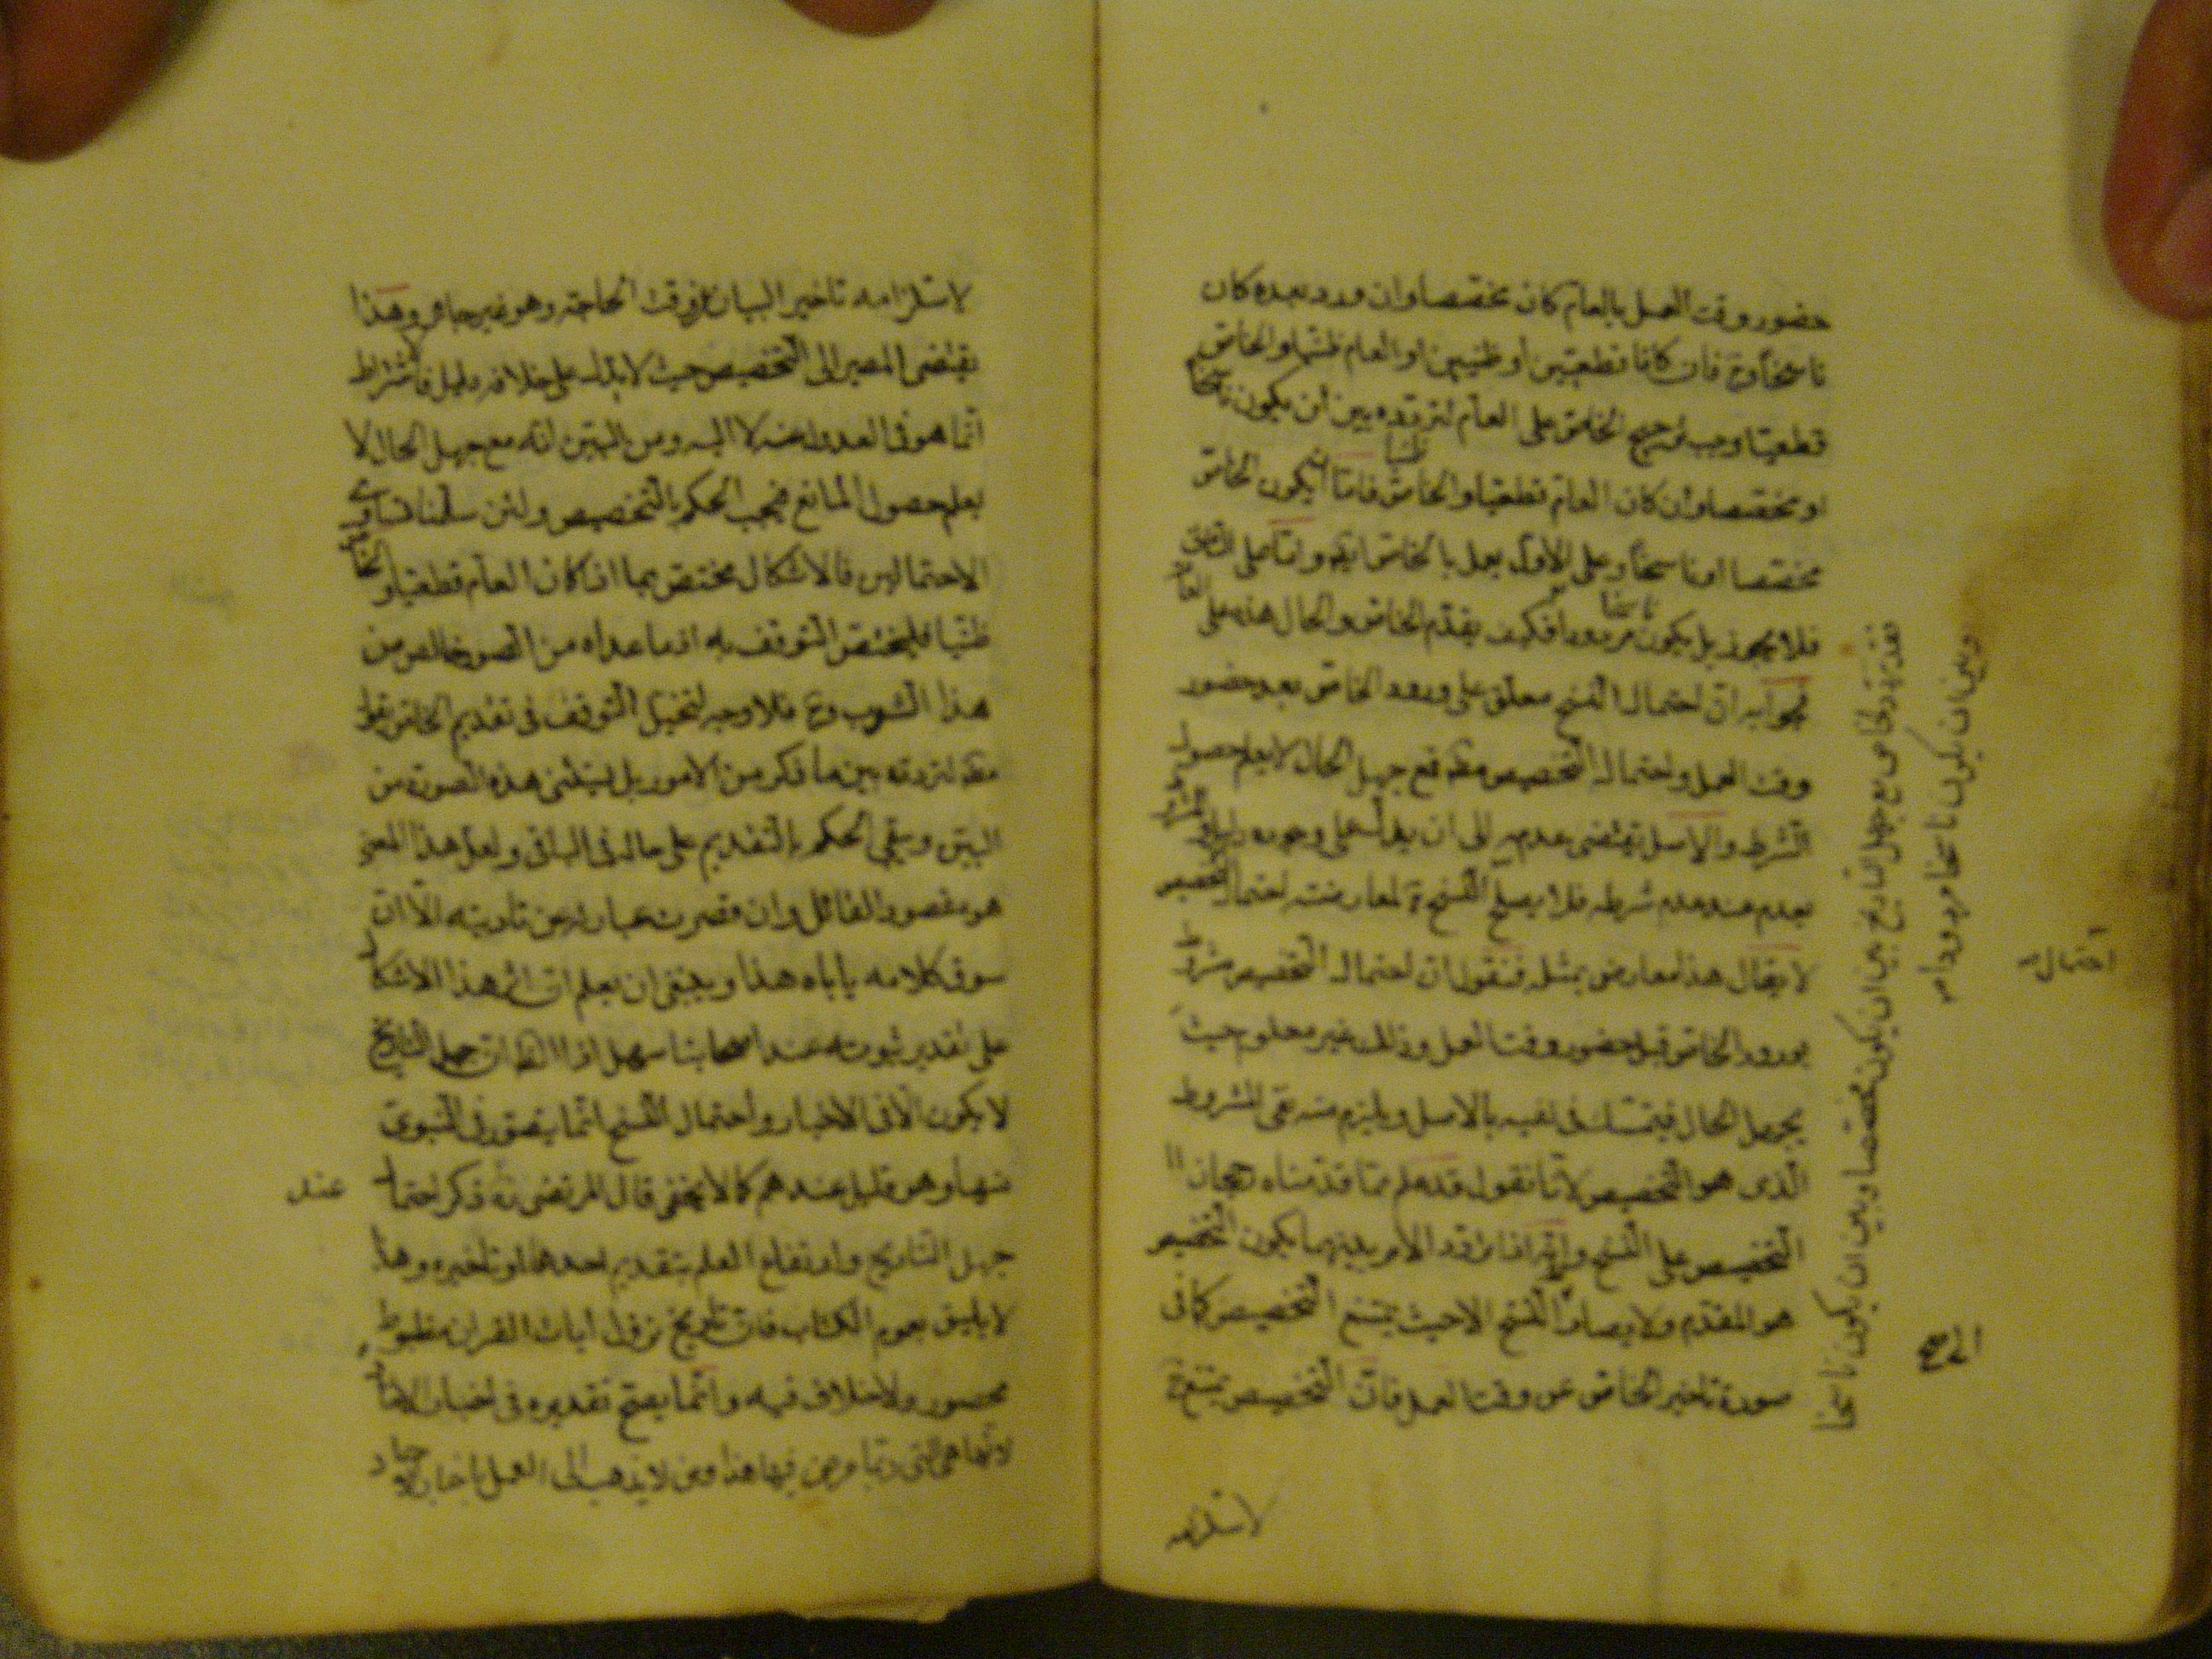 حضور وقت العمل بالعام كان مخصصا وان ورد بعده كان
ناسخا وح فان كانا قطعيين او ظنيين او العام ظنيا والخاص
قطعيا وجب ترجيح الخاص على العام لتردده بين ان يكون ناسخا
او مخصصا وان كان العام قطعيا والخاص ظنيا فاما ان يكون الخاص
مخصصا او ناسخا وعلى الاول يعمل بالخاص ايضا واما على الثانى
فلا يجوز بل يكون مردودا فكيف يقدم الخاص والحال هذه على العام
فجوابه ان احتمال النسخ معلق على ورود الخاص بعد حضور
وقت العمل واحتمال التخصيص مطلق فمع جهل الحال لا يعلم حصول
الشرط والاصل يقتضى عدمه الى ان يدل على وجوده دليل والمشروط
يعدم عند عدم شرطه فلا يصلح النسخ ح لمعارضته احتمال التخصيص
لا يقال هذا معارض بمثله فنقول ان احتمال التخصيص مشروط
بورود الخاص قبل حضور وقت العمل وذلك غير معلوم حيث
يجهل الحال فيتمسك فى نفيه بالاصل ويلزم منه نفى المشروط
الذى هو التخصيص لانا نقول قد علم مما قدمناه رجحان
التخصيص على النسخ وانه اذا تردد الامر بينهما يكون التخصيص
هو المقدم ولا يصار الى النسخ الا حيث يمتنع التخصيص كما فى
صورة تاخير الخاص عن وقت العمل فان التخصيص يمتنع ح
لاستلزامه
تردد الخاص مع جهل التاريخ بين ان يكون مخصصا وبين ان يكون ناسخا
وبين ان يكون ناسخا مردودا
احتمال
لاستلزامه تاخير البيان عن وقت الحاجة وهو غير جايز وهذا
يقتضى المصير الى التخصيص حيث لا يدل على خلافه دليل فالاشتراط
انما هو فى العدول عنه لا اليه ومن البين انه مع جهل الحال لا
يعلم حصول المانع فيجب الحكم بالتخصيص ولئن سلمنا تساوى
الاحتمالين فالاشكال مختص بما اذا كان العام قطعيا والخاص
ظنيا فليختص التوقف به اذ ما عداه من الصور خالص من
هذا الشوب وح فلا وجه لتخيل التوقف فى تقديم الخاص بقول
مطلق لتردده بين ما ذكر من الامور بل يستثنى هذه الصورة من
البين ويبقى الحكم بالتقديم على حاله فى الباقى ولعل هذا المعنى
هو مقصود القائل وان قصرت عبارته عن تاديته الا ان
سوق كلامه ياباه هذا وينبغى ان يعلم ان اثر هذا الاشكال
على تقدير ثبوته عند اصحابنا سهل اذ الظاهر ان جهل التاريخ
لا يكون الا فى الاخبار واحتمال النسخ انما يتصور فى النبوى
منها وهو قليل عندهم كما لا يخفى قال المرتضى ره ذكر احتمال
عند
جهل التاريخ وارتفاع العلم بتقديم احدهما او تاخيره وهذا
لا يليق بعموم الكتاب فان تاريخ نزول ايات القران مضبوط
محصور ولا خلاف فيه وانما يصح تقديره فى اخبار الاحاد
لانها هى التى ربما عرض فيها هذا ومن لا يذهب الى العمل باخبار الاحاد